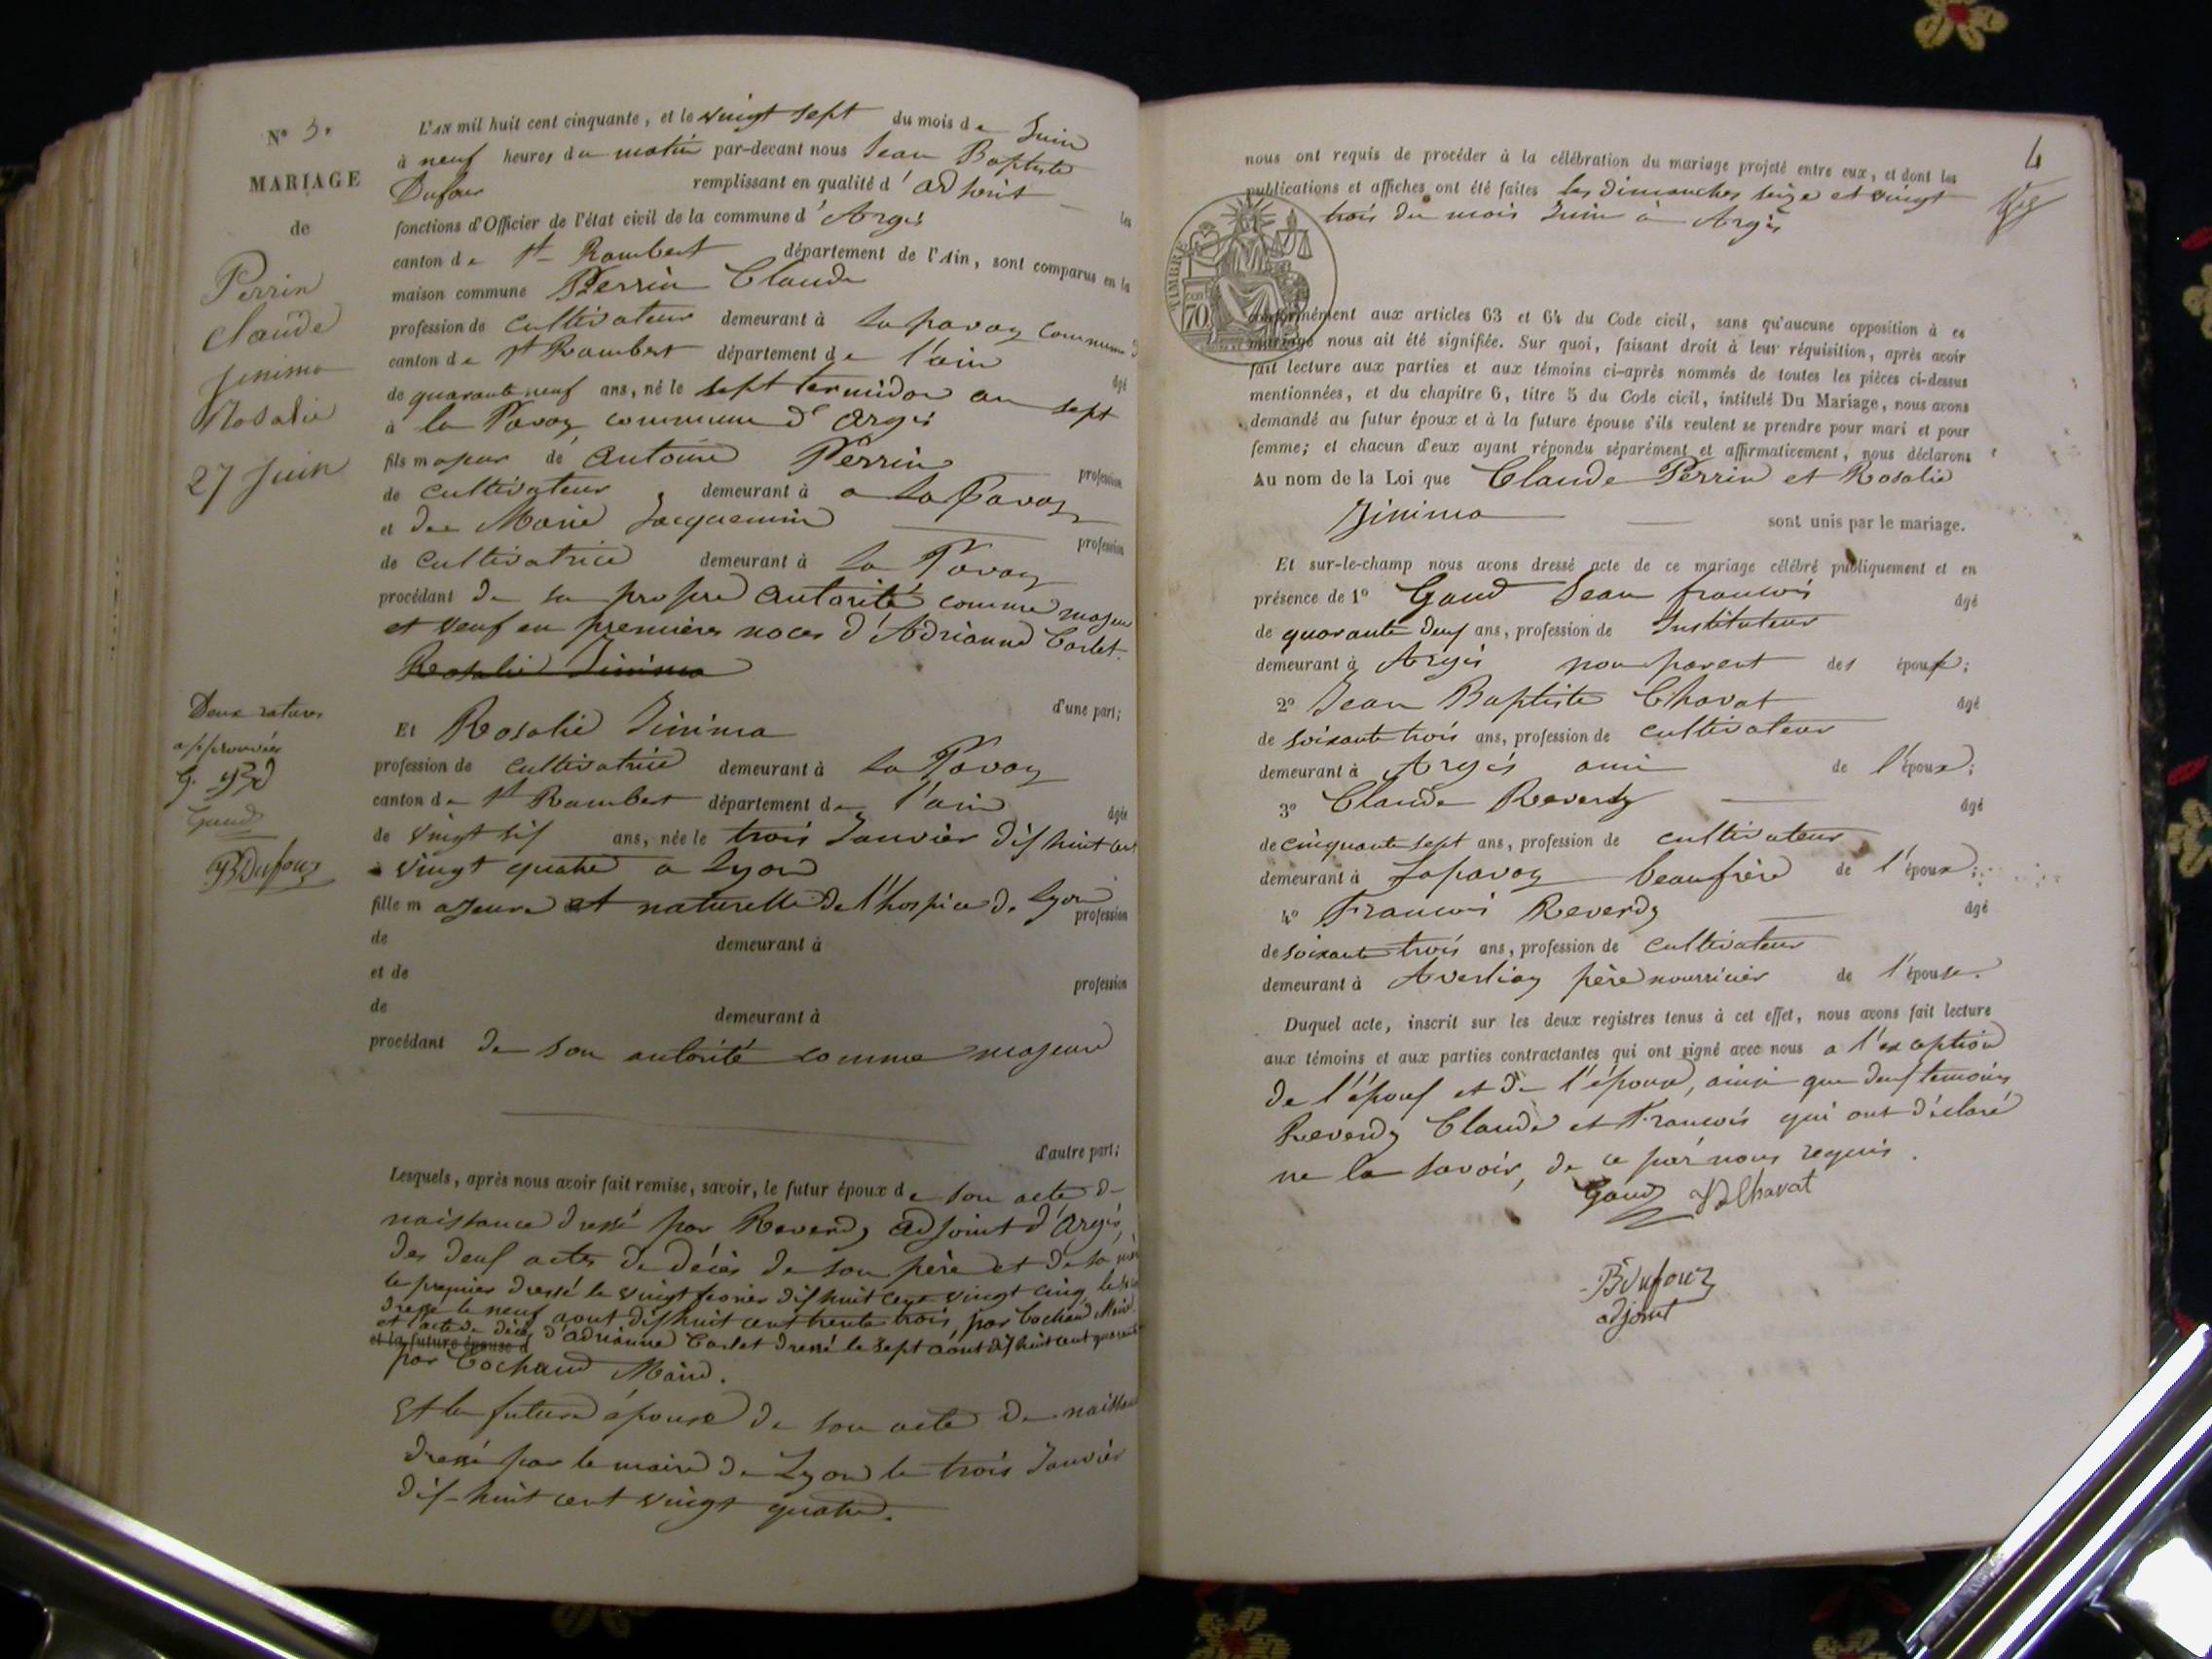 N° 3.
MARIAGE
de
Perrin
Claude
Jinima
Rosalie
27 Juin
Deux ratures
approuvées
Gaud
Dufour
L'AN mil huit cent cinquante, et le vingt sept du mois de Juin
à neuf heures du matin par-devant nous Jean Baptiste
Dufour remplissant en qualité d'adjoint les
fonctions d'Officier de l'état civil de la commune d'Argis
canton de St Rambert département de l'Ain, sont comparus en la
maison commune Perrin Claude
profession de cultivateur demeurant à la pavaz commune
canton de St Rambert département de l'ain âgé
de quarante neuf ans, né le sept termidor an sept
à la Pavaz commune d'argis
fils majeur de Antoine Perrin profession
de cultivateur, demeurant à a La Pavaz
et de Marie Jacquemin profession
de cultivatrice demeurant à La Pavaz
procédant de sa propre autorité comme majeur
et veuf en premières noces d'Adrianne Carlet.
Rosalie Jinima
d'une part;
Et Rosalie Jinima
profession de cultivatrice demeurant à La Pavaz
canton de St Rambert département de l'ain âgée
de vingt six ans, née le trois Janvier dix huit cent
vingt quatre a Lyon
fille majeure et naturelle de l'hospice de Lyon profession
de demeurant à
et de profession
de demeurant à
procédant de son autorité comme majeure
d'autre part;
Lesquels, après nous avoir fait remise, savoir, le futur époux de son acte de
naissance dressé par Reverdy adjoint d'Argis,
des deux actes de décès de son père et de sa mère
le premier dressé le vingt fevrier dix huit cent vingt cinq, le
dressé le neuf aout dix huit cent trente trois, par Cochaud Maire
et acte de décès d'adrianne Carlet dressé le sept aout dix huit cent quarante
et la future épouse d
par Cochaud Maire.
Et la future épouse de son acte de naissance
dressé par le maire de Lyon le trois Janvier
dix-huit cent vingt quatre.
4
nous ont requis de procéder à la célébration du mariage projeté entre eux, et dont les
publications et affiches ont été faites les dimanches seize et vingt
trois du mois Juin à Argis
TIMBRE
70
conformément aux articles 63 et 64 du Code civil, sans qu'aucune opposition à ce
mariage nous ait été signifiée. Sur quoi, faisant droit à leur réquisition, après avoir
fait lecture aux parties et aux témoins ci-après nommés de toutes les pièces ci-dessus
mentionnées, et du chapitre 6, titre 5 du Code civil, intitulé Du Mariage, nous avons
demandé au futur époux et à la future épouse s'ils veulent se prendre pour mari et pour
femme; et chacun d'eux ayant répondu séparément et affirmativement, nous déclarons
Au nom de la Loi que Claude Perrin et Rosalie
Jinima sont unis par le mariage.
Et sur-le-champ nous avons dressé acte de ce mariage célébré publiquement et en
présence de 1° Gaud Jean francois âgé
de quarante deux ans, profession de Instituteur
demeurant à Argis non parent des époux;
2° Jean Baptiste Chavat âgé
de soixante trois ans, profession de cultivateur
demeurant à Argis ami de l'époux;
3° Claude Reverdy âgé
de cinquante sept ans, profession de cultivateur
demeurant à Lapavaz beaufrère de l'époux;
4° Francois Reverdy âgé
de soixante trois ans, profession de cultivateur
demeurant à Averliaz père nourricier de l'épouse.
Duquel acte, inscrit sur les deux registres tenus à cet effet, nous avons fait lecture
aux témoins et aux parties contractantes qui ont signé avec nous a l'exception
de l'époux et de l'épouse, ainsi que deux temoins
Reverdy Claude et Francois qui ont déclaré
ne la savoir, de ce par nous requis.
Gaud JB Chavat
B Dufour
adjoint